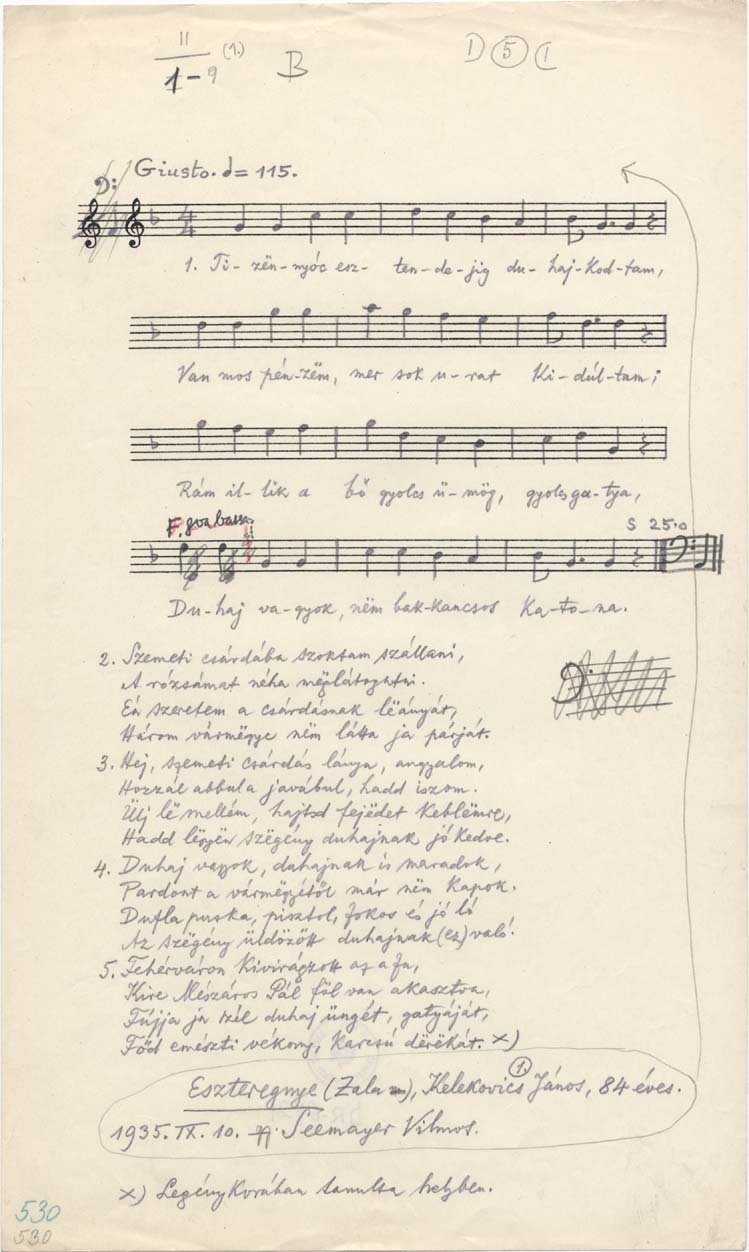 II
1-9 (1.) B D 5 (
Giusto. = 115.
1. Ti- zën- nyóc esz- ten- de- jig du- haj- kod- tam,
Van mos pén- zëm, mer sok u- rat ki- dúl- tam;
Rám il- lik a bő gyolcs ü- mög, gyolcs ga- tya,
F. 8va bassa S 25.0
Du- haj va- gyok, nëm bak- kancsos ka- to- na.
2. Szemeti csárdába szoktam szállani,
A rózsámat néha mëglátogatni.
Én szeretem a csárdásnak lëányát,
Három vármëgye nëm látta ja párját.
3. Hej, szemeti csárdás lánya, angyalom,
Hozzál abbula javábul, hadd iszom.
Ülj lë mellém, hajtsd fejédet keblëmre,
Hadd lëgyën szëgény duhajnak jó kedve.
4. Duhaj vagyok, duhajnak is maradok,
Pardont a vármëgyétől már nëm kapok.
Dufla puska, pisztol, fokos és jó ló
Az szëgény üldözött duhajnak (ez) való.
5. Fehérváron kivirágzott az a fa,
Kire Mészáros Pál föl van akasztva,
Fújja ja szél duhaj üngét, gatyáját,
Főd emészti vékony, karcsú dërëkát. x)
Eszteregnye (Zala), Kelekovics János, 84 éves. 1.
1935. IX. 10. Seemayer Vilmos.
x) Legénykorában tanulta helyben.
530
530